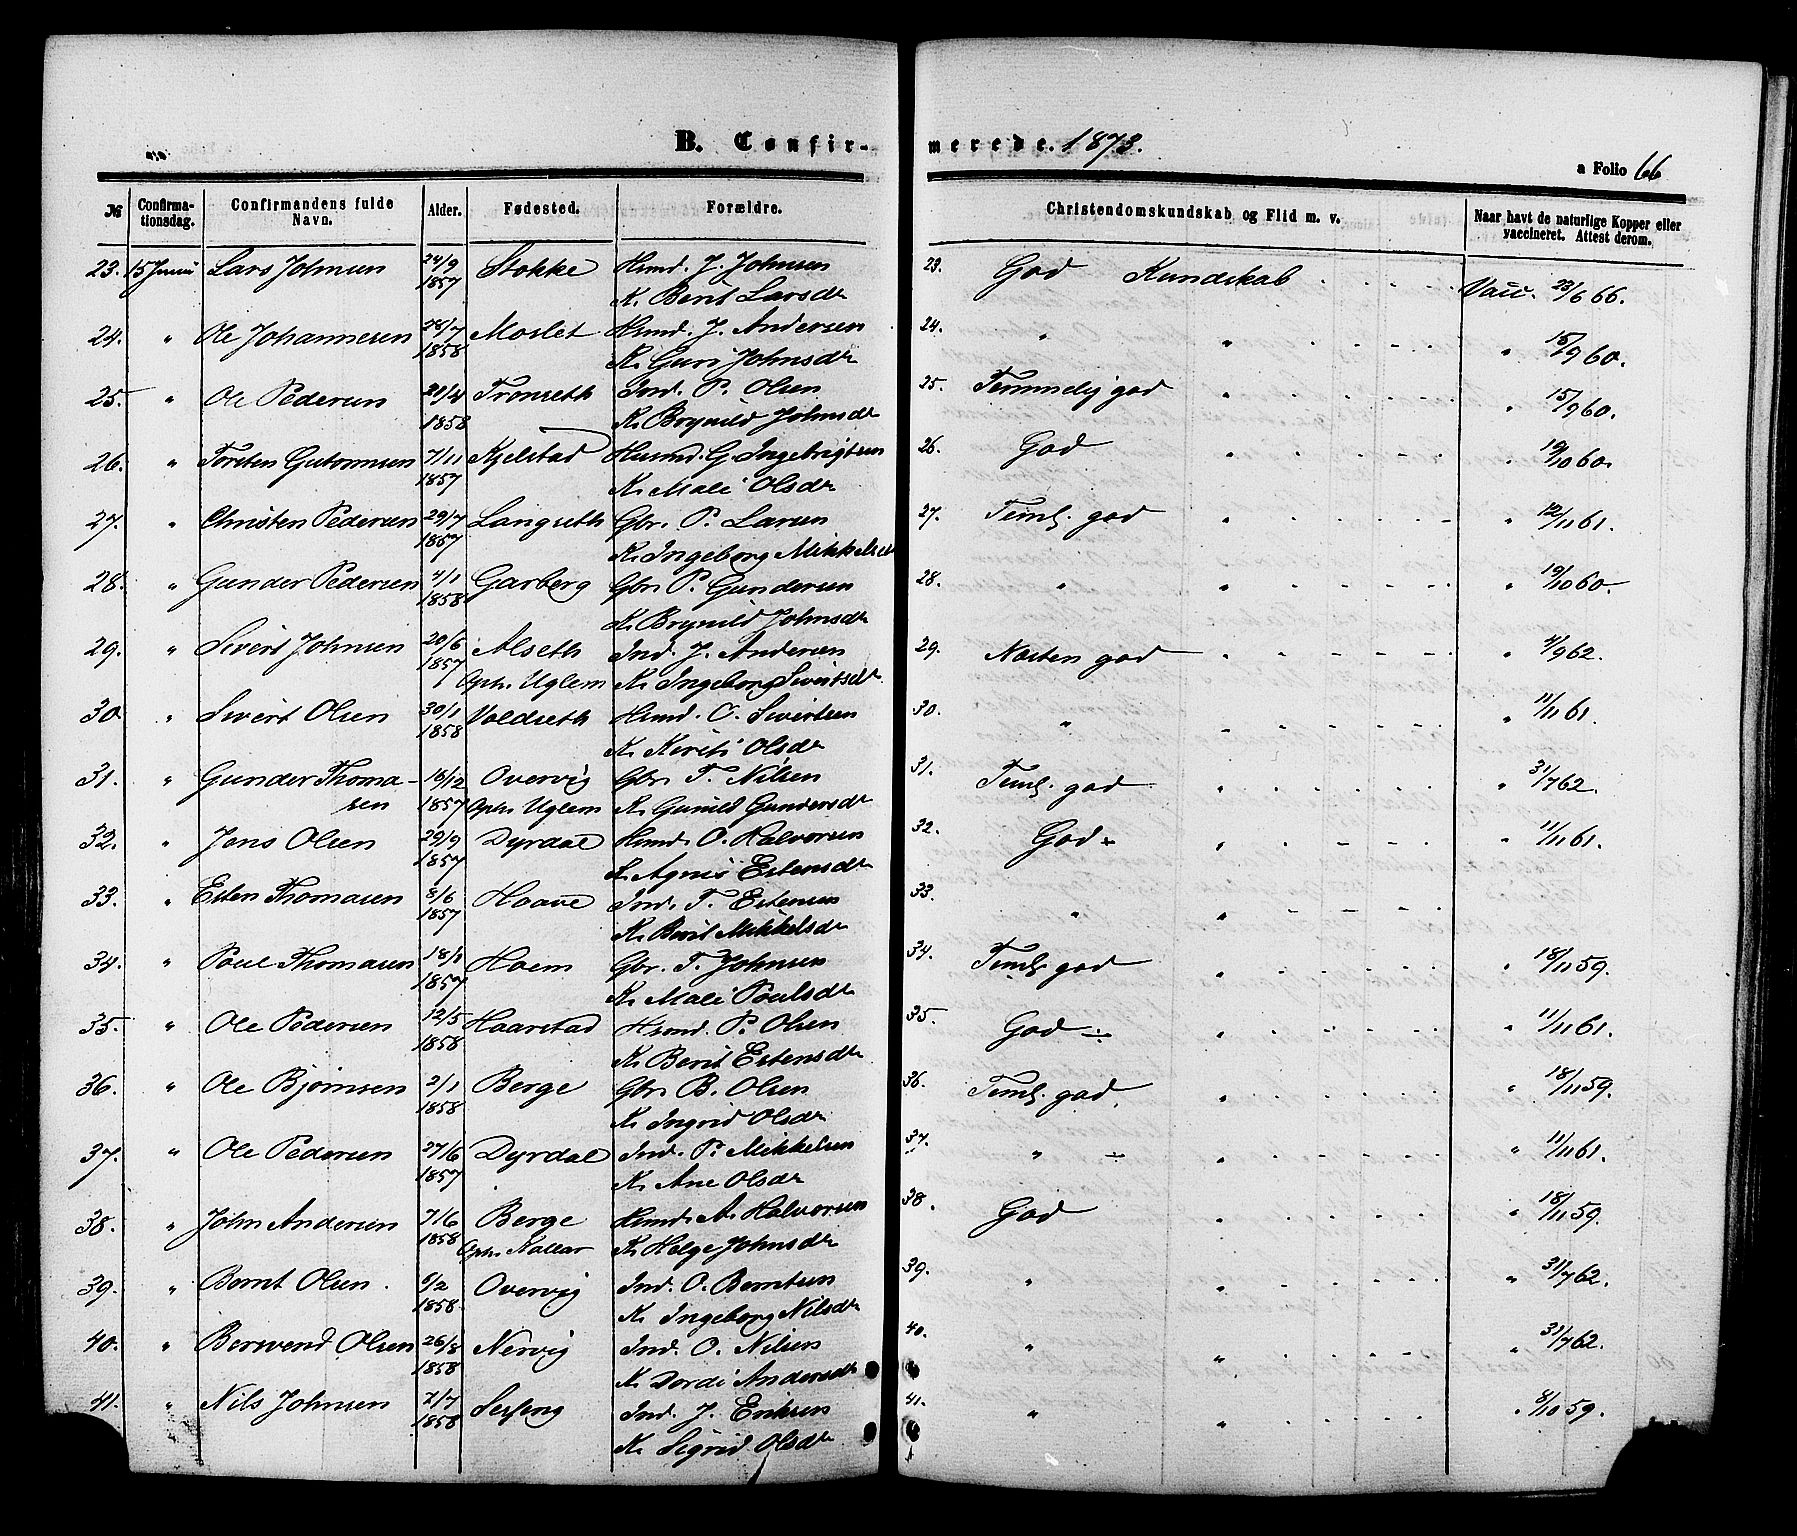 B. Confirmerede. 1873.
a Folio 66
№ Confirmationsdag. Confirmandens fulde Navn. Alder. Fødested. Forældre. Christendomskundskab og Flid m. v. Naar havt de naturlige Kopper eller vaccineret. Attest derom.
23. 15 Juni Lars Johnsen 24/9 1857 Stokke Hsmd. J. Johnsen 23. God Kundskab Vacc. 23/6 66.
K. Berit Larsdr
24. " Ole Johannesen 28/7 1858 Moslet Hsmd. J. Andersen 24. " " " 15/9 60.
K. Guri Johnsdr
25. " Ole Pedersen 21/4 1858 Tronseth Ind. P. Olsen 25. Temmelig god " " 15/9 60.
K. Brynild Johnsdr
26. " Torsten Guttormsen 7/11 1857 Kjelstad Husmd. G. Ingebrigtsen 26. God " " 19/10 60.
K. Mali Olsdr
27. " Christen Pedersen 29/7 1857 Langseth Gbr. P. Larsen 27. Teml. god " " 12/11 61.
K. Ingeborg Mikkelsd
28. " Gunder Pedersen 4/1 1858 Garberg Gbr. P. Gundersen 28. " " " 19/10 60.
K. Brynild Johnsdr
29. " Sivert Johnsen 20/6 1857 Alseth Ind. J. Andersen 29. Næsten god " " 4/9 62.
Oph. Uglem K. Ingeborg Sivertsdr
30. " Sivert Olsen 30/1 1858 Voldseth Hsmd. O. Sivertsen 30. " " " 11/11 61.
K. Kirsti Olsdr
31. " Gunder Thomasen 16/12 1857 Overvig Gbr. T. Nilsen 31. Teml. god " " 31/7 62.
Oph. Uglem K. Gunild Gundersdr
32. " Jens Olsen 29/9 1857 Dyrdal Hsmd. O. Halvorsen 32. God " " 11/11 61.
K. Agnis Estensdr
33. " Esten Thomasen 8/6 1857 Haave Ind. T. Estensen 33. " "
K. Berit Mikkelsdr
34. " Poul Thomasen 18/1 1857 Hoem Gbr. T. Johnsen 34. Teml. god " " 18/11 59.
K. Mali Poulsdr
35. " Ole Pedersen 12/5 1858 Haarstad Hsmd. P. Olsen 35. God " " 11/11 61.
K. Berit Estensdr
36. " Ole Bjørnsen 2/1 1858 Berge Gbr. B. Olsen 36. Teml. god. " " 18/11 59.
K. Ingrid Olsdr
37. " Ole Pedersen 27/6 1857 Dyrdal Ind. P. Mikkelsen 37. " " " 11/11 61.
K. Ane Olsdr
38. " John Andersen 7/6 1858 Berge Hsmd. A. Halvorsen 38. God " " 18/11 59.
Oph. Kallar K. Helge Johnsdr
39. " Bernt Olsen 5/2 1858. Overvig Ind. O. Berntsen 39. " " " 31/7 62.
K. Ingeborg Nilsdr
40. " Berwend Olsen 26/8 1858 Nervig Ind. O. Nilsen 40. " " " 31/7 62.
K. Dordi Andersdr
41. " Nils Johnsen 7/7 1858 Sesseng Ind. J. Eriksen 41. " " " 8/10 59.
K. Sigrid Olsdr